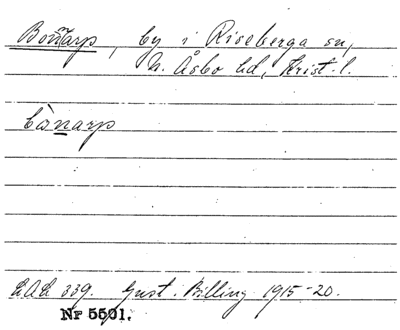 Bonnarp, by i Riseberga sn,
N. Åsbo hd, Krist. l.
bȯnarp
LAL 339. Gust. Billing 1915-20.
Nr 5501.